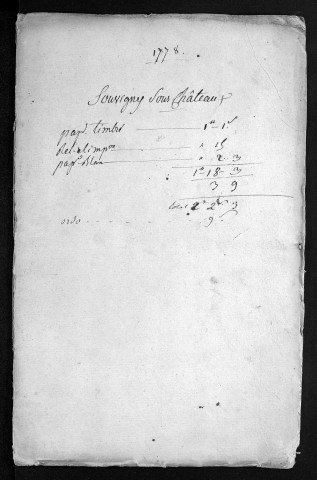 1778.
Souvigny Sous Château
pap. timbré 1# 1s
Rel. et imp.on " 15
pap. Blan " 2 3
1# 18 3
3 9
total 2# 2s 3
ordo 9